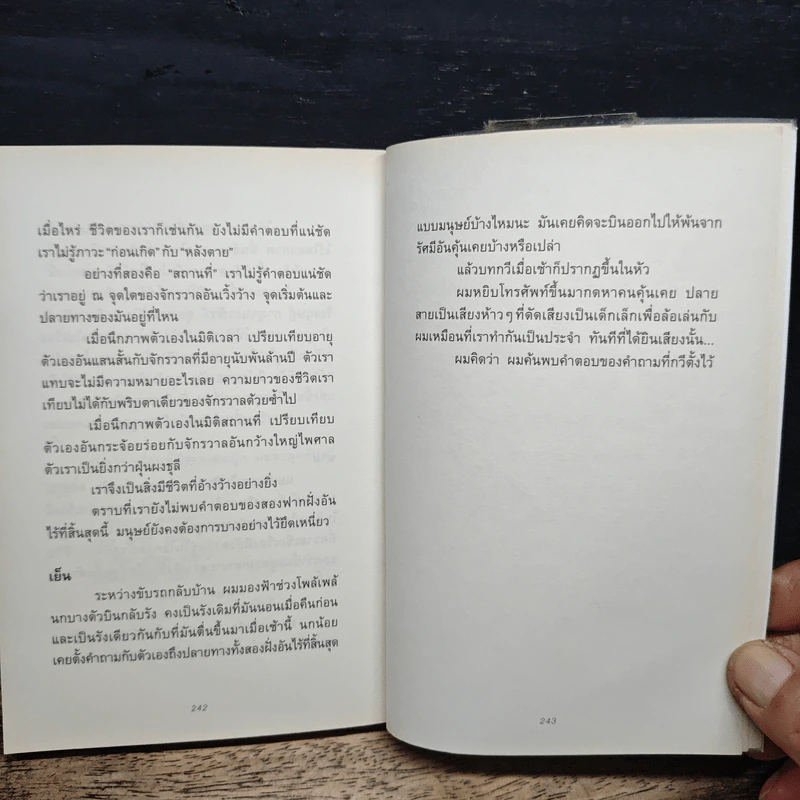 เมื่อไหร่ ชีวิตของเราก็เช่นกัน ยังไม่มีคำตอบที่แน่ชัด
เราไม่รู้ภาวะ "ก่อนเกิด" กับ "หลังตาย"
อย่างที่สองคือ "สถานที่" เราไม่รู้คำตอบแน่ชัด
ว่าเราอยู่ ณ จุดใดของจักรวาลอันเวิ้งว้าง จุดเริ่มต้นและ
ปลายทางของมันอยู่ที่ไหน
เมื่อนึกภาพตัวเองในมิติเวลา เปรียบเทียบอายุ
ตัวเองอันแสนสั้นกับจักรวาลที่มีอายุนับพันล้านปี ตัวเรา
แทบจะไม่มีความหมายอะไรเลย ความยาวของชีวิตเรา
เทียบไม่ได้กับพริบตาเดียวของจักรวาลด้วยซ้ำไป
เมื่อนึกภาพตัวเองในมิติสถานที่ เปรียบเทียบ
ตัวเองอันกระจ้อยร่อยกับจักรวาลอันกว้างใหญ่ไพศาล
ตัวเราเป็นยิ่งกว่าฝุ่นผงธุลี
เราจึงเป็นสิ่งมีชีวิตที่อ้างว้างอย่างยิ่ง
ตราบที่เรายังไม่พบคำตอบของสองฟากฝั่งอัน
ไร้ที่สิ้นสุดนี้ มนุษย์ยังคงต้องการบางอย่างไว้ยึดเหนี่ยว
เย็น
ระหว่างขับรถกลับบ้าน ผมมองฟ้าช่วงโพล้เพล้
นกบางตัวบินกลับรัง คงเป็นรังเดิมที่มันนอนเมื่อคืนก่อน
และเป็นรังเดียวกันกับที่มันตื่นขึ้นมาเมื่อเช้านี้ นกน้อย
เคยตั้งคำถามกับตัวเองถึงปลายทางทั้งสองฝั่งอันไร้ที่สิ้นสุด
242
แบบมนุษย์บ้างไหมนะ มันเคยคิดจะบินออกไปให้พ้นจาก
รัศมีอันคุ้นเคยบ้างหรือเปล่า
แล้วบทกวีเมื่อเช้าก็ปรากฏขึ้นในหัว
ผมหยิบโทรศัพท์ขึ้นมากดหาคนคุ้นเคย ปลาย
สายเป็นเสียงห้าวๆ ที่ดัดเสียงเป็นเด็กเล็กเพื่อล้อเล่นกับ
ผมเหมือนที่เราทำกันเป็นประจำ ทันทีที่ได้ยินเสียงนั้น...
ผมคิดว่า ผมค้นพบคำตอบของคำถามที่กวีตั้งไว้
243